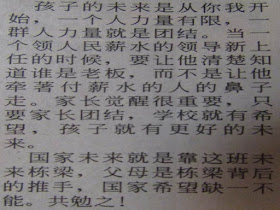 孩子的未来是从你我开
始，一个人力量有限，一
群人力量就是团结。当一
个领人民薪水的领导新上
任的时候，要让他清楚知
道谁是老板，而不是让他
牵著付薪水的人的鼻子
走。家长觉醒很重要，只
要家长团结，学校就有希
望，孩子就有更好的未
来。
国家未来就是靠这班未
来栋梁，父母是栋梁背后
的推手，国家希望缺一不
能。共勉之！